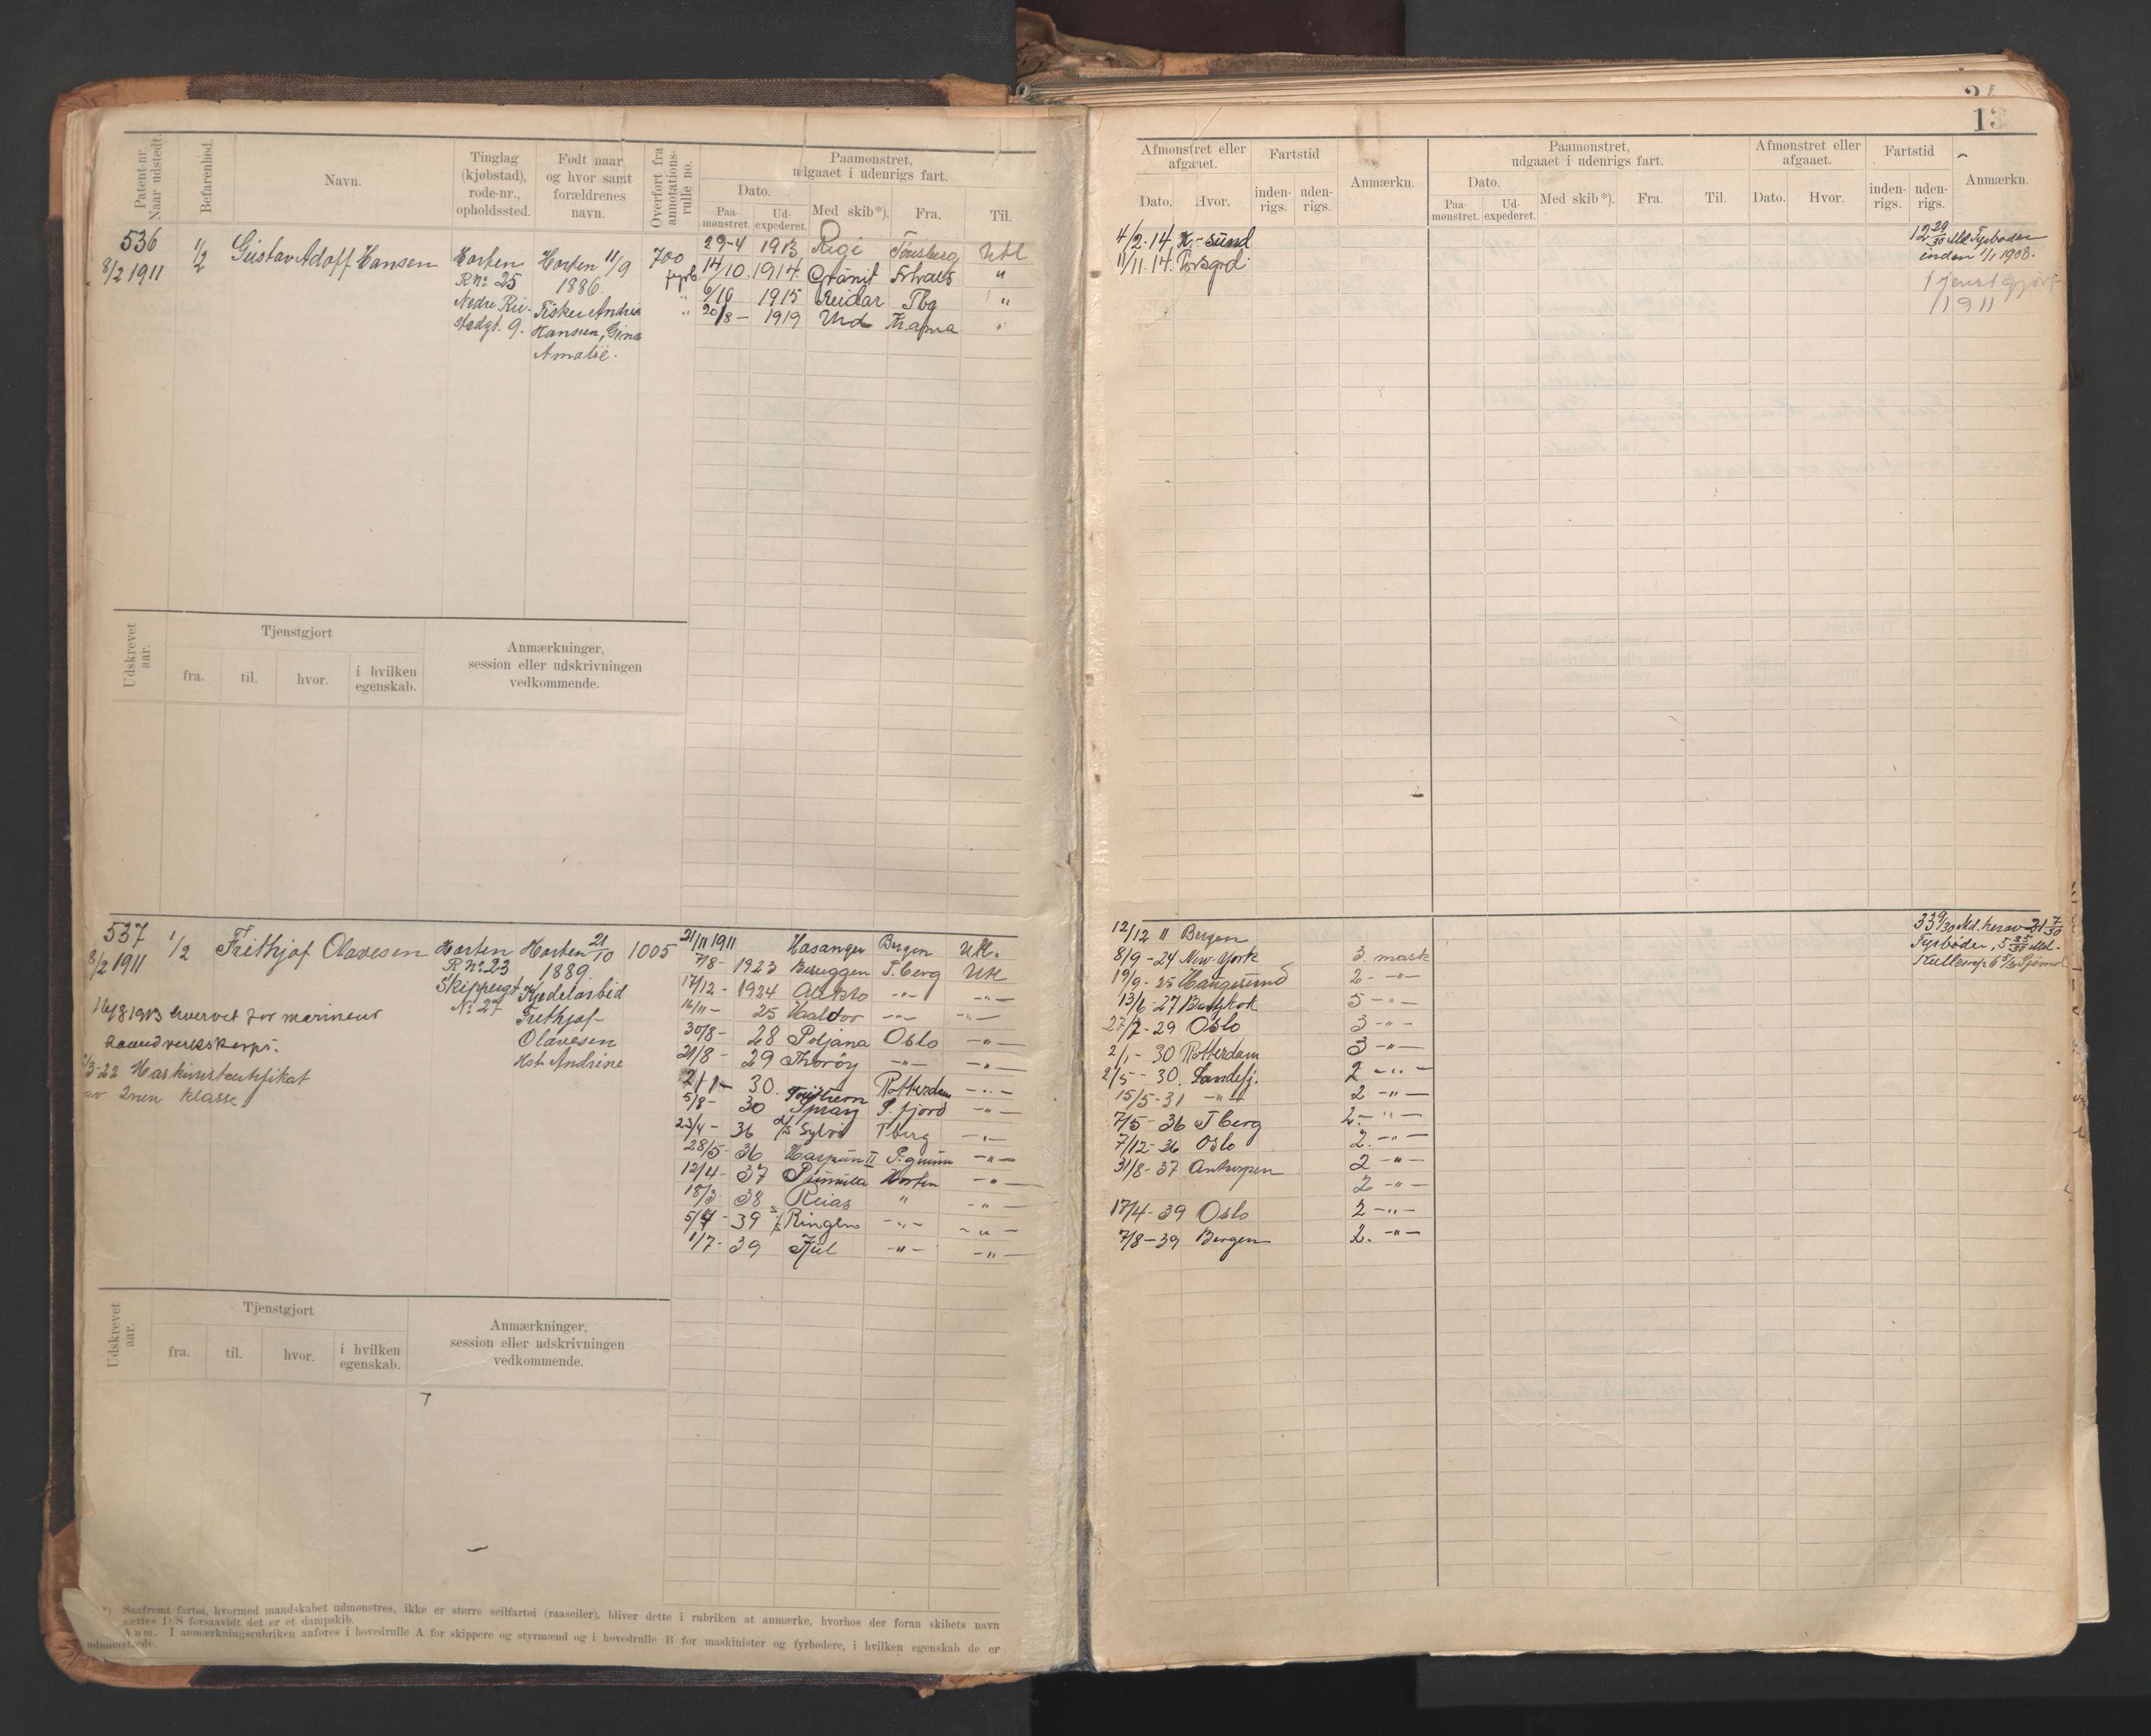 13
Patent-nr. Naar udstedt.
Befarenhed.
Navn.
Tinglag (kjøbstad), rode-nr., opholdssted.
Født naar og hvor samt forældrenes navn.
Overført fra annotations-rulle no.
Paamønstret, udgaaet i udenrigs fart.
Dato.
Paa-mønstret.
Ud-expederet.
Med skib*).
Fra.
Til.
Afmønstret eller afgaaet.
Dato.
Hvor.
Fartstid
inden-rigs.
uden-rigs.
Anmærkn.
Paamønstret, udgaaet i udenrigs fart.
Dato.
Paa-mønstret.
Ud-expederet.
Med skib*).
Fra.
Til.
Afmønstret eller afgaaet.
Dato.
Hvor.
Fartstid
inden-rigs.
uden-rigs.
Anmærkn.
536
8/2 1911
1/2
Gustav Adolf Hansen
Horten
R nº 25
Nedre Ri-
stadgt. 9.
Horten 11/9
1886
Fisker Andrias
Hansen, Gina
Amalie.
700
fyrb.
29-4 1913 Rigi Tønsberg Utl
14/10 1914 Granit Frhals "
6/10 1915 Reidar Tbg "
20/8 - 1919 Urd "
4/2-14 K-sund
11/11.14. Porsgrd
12 29/30 Md Fyrbøder
inden 1/1 1908.
Tjenstgjort
1911
Udskrevet aar.
Tjenstgjort
fra.
til.
hvor.
i hvilken egenskab.
Anmærkninger, session eller udskrivningen vedkommende.
537
8/2 1911
1/2
Frithjof Olavesen
Horten
R nº 23
Skippergt.
Nº 27
Horten 21/10
1889.
Kjedelarbeid
Frithjof
Olavesen
Hst Andrine
1005
16/8 1913 hvervet for marinens
haandverkskorps.
/3-22 Maskinistcertifikat
av 2nen klasse
21/11 1911 Hasanger Bergen Utl.
7/8 - 1923 Beruggen T.berg Utl
17/12 - 1924 -"- -"-
16/11 - 25 Haldor -"- -"-
30/8 - 28 Poljana Oslo -"-
21/8 - 29 Thorøy -"- -"-
2/1 - 30. Rotterdam -"-
5/8 - 30 Spray S.fjord -"-
23/4 - 36 d/s Sylvi Tberg -"-
28/5 - 36 Harpun II P.grunn -"-
12/4 - 37 Horten -"-
18/3 38 Reias " -"-
5/4 - 39 s/s Ringen -"- -"-
1/7 - 39 Kjul -"- -"-
12/12 11 Bergen
8/9 - 24 New-York 3. mask
19/9 - 25 Haugesund 2 -"-
13/6 - 27 Bangkok 5 -"-
27/7 - 29 Oslo 3 -"-
2/1 - 30 Rotterdam 3 -"-
2/5 - 30. Sandefj. 2 -"-
15/5 - 31 -"- 2 -"-
7/5 - 36 Tberg 2 -"-
7/12 - 36 Oslo 2. -"-
31/8 - 37 Antwerpen 2 -"-
2 -"-
17/4 - 39 Oslo 2 -"-
7/8 - 39 Bergen 2. -"-
33 9/30 Md. herav 21 7/30
Fyrbøder, 5 25/30 Md.
Udskrevet aar.
Tjenstgjort
fra.
til.
hvor.
i hvilken egenskab.
Anmærkninger, session eller udskrivningen vedkommende.
*) Saafremt fartøi, hvormed mandskabet udmønstres, ikke er større seilfartøi (raaseiler), bliver dette i rubriken at anmærke, hvorhos der foran skibets navn
sættes D/S forsaavidt det er et dampskib.
Anm. I anmærkningsrubriken anføres i hovedrulle A for skippere og styrmænd og i hovedrulle B for maskinister og fyrbødere, i hvilken egenskab de er
udmønstrede.